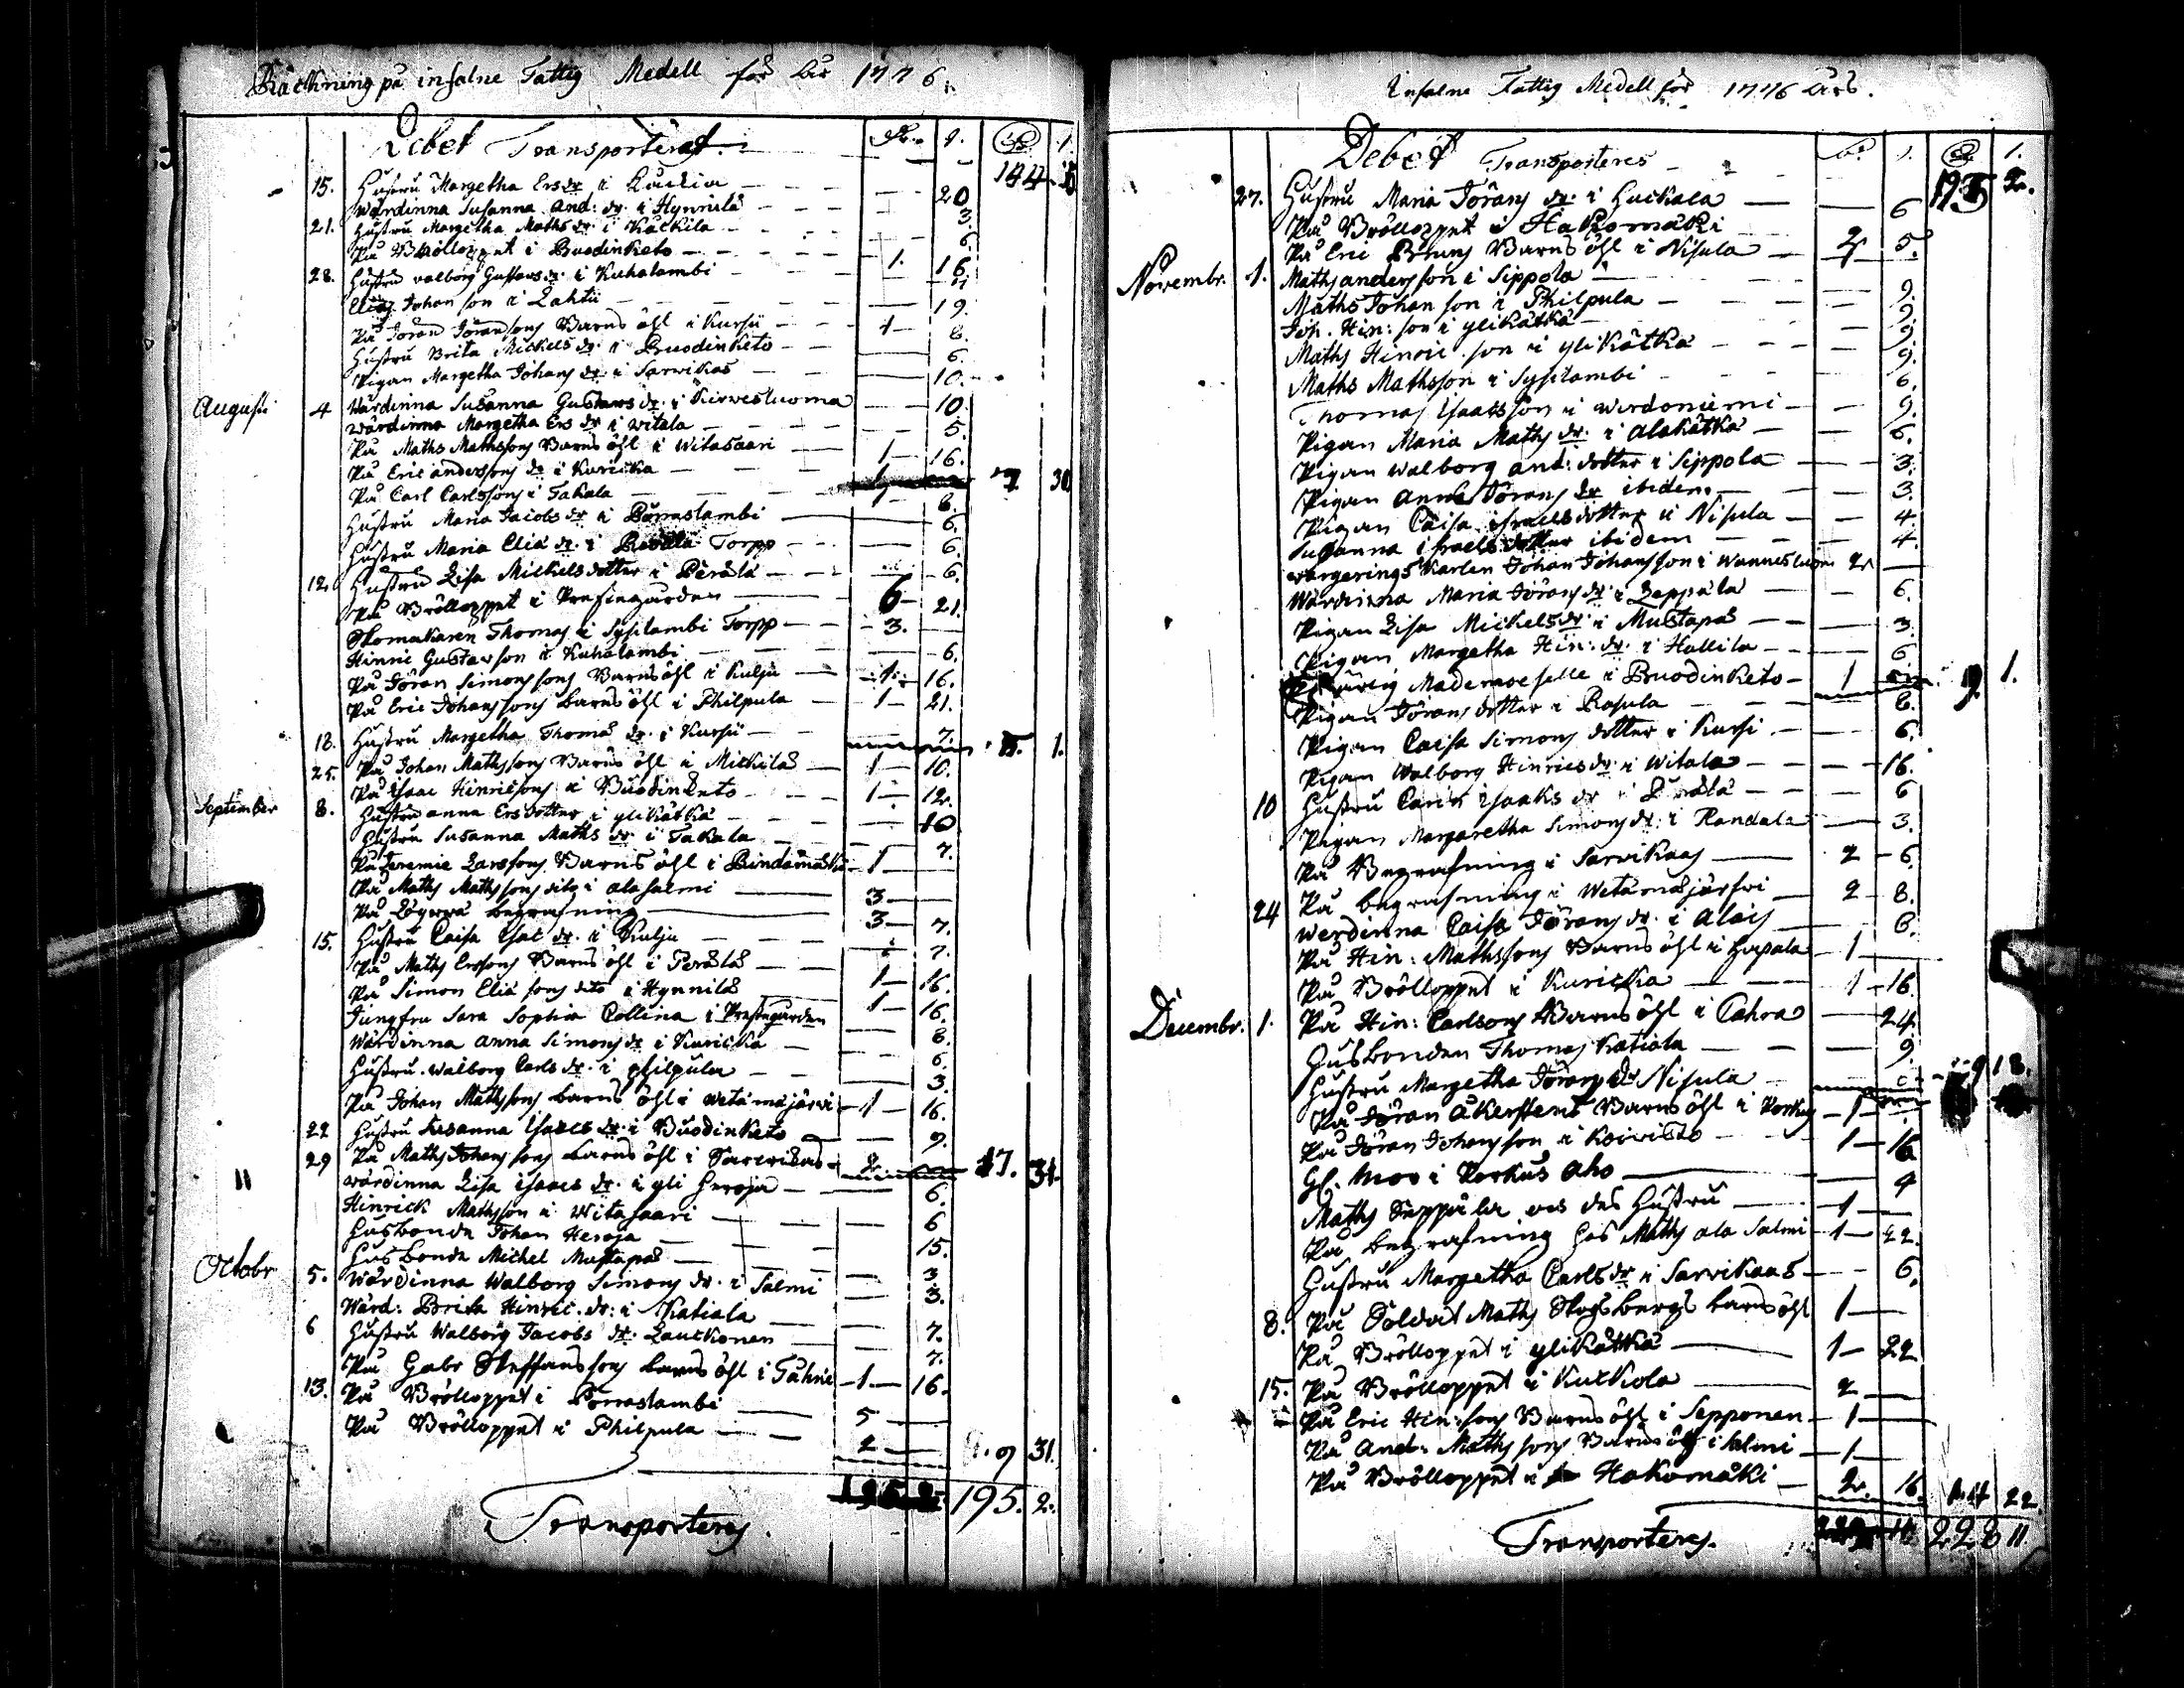 Räckning på infalne Fattig Medell för år 1776.
Debet Transporteras 144
15. Hustru Margetha Ers dr. i 20
Wärdinna Susanna And: dr. i Hynnilä 3.
21. Hustru Margetha Maths dr. i Käckilä 6.
På Bröllopet i Ruodinketo 1. 16.
28. Hustru Valborg Gustavs dr. i Kuhalambi 7
Elias Johansson i Lahti 19.
På Jöran Jöranssons Barns öhl i Kursu 1 8.
Hustru Brita Mickels dr. i Ruodinketo 6.
Pigan Margetha Johans dr. i Sarwikas 10.
Augusti 4 Wärdinna Susanna Gustavs dr. i Kirwestuoma 10.
Wärdinna Margetha Ers dr i Witala 5.
På Maths Mathssons Barns öhl i Witasaari 1 16.
På Eric Anderssons do i Karicka 7 30
På Carl Carlssons i Takala 1 8.
Hustru Maria Jacobs dr. i Porraslambi 6.
Hustru Maria Eliæ dr. i Torpp 6.
12. Hustru Lisa Mickelsdotter i Perälä 6.
På Bröllopet i Prestegården 6 21.
Skomakaren Thomas i Sysilambi Torpp 3.
Hinric Gustavson i Kuhalambi 6.
På Jöran Simonssons Barns öhl i Kulju 1. 16.
På Eric Johanssons barns öhl i Philpula 1 21.
18. Hustru Margetha Thomæ dr. i Kursu 7. 1.
25. På Johan Mathssons Barns öhl i Mickilä 1 10.
På Isaac Hinricsons i Ruodinketo 1. 12.
September 8. Hustru Anna Ersdotter i Ylikätkä 10
Hustru Susanna Maths dr. i Takala 7.
På Jeremie Larssons Barns öhl i 1
På Maths Mathssons dito i Alasalmi 3
På begrafning 3 7.
15. Hustru Caisa Isac dr. i Kulju 7.
På Maths Erssons Barns öhl i Perälä 1 16.
På Simon Eliæ sons dito i Hynnilä 1 16.
Jungfru Sara Sophia Collina i Prestegården 8.
Wärdinna Anna Simons dr i Karicka 6.
Hustru Walborg Carls dr. i Philpula 3.
På Johan Mathssons barns öhl i Wetämäjärwi 1 16.
22 Hustru Susanna Isaacs dr. i Ruodinketo 9.
29 På Maths Johanssons barns öhl i Sarwikas 2 17. 31
Wärdinna Lisa Isaacs dr. i Yli Heroja 6.
Hinrick Mathsson i Witasaari 6
Husbonde Johan Heroja 15.
Husbonde Michel Mustapää 3.
Octobr 5. Wärdinna Walborg Simons dr. i Salmi 3.
Wärd: Brita Hinric. dr: i Katiala 7.
6 Hustru Walborg Jacobs dr. Lauckonen 7.
På Gabr Steffanssons barns öhl i 1 16.
13. På Bröllopet i Porraslambi 5
På Bröllopet i Philpula 2 9 31.
195. 2.
Transporteres.
Infalne Fattig Medell för 1776 års.
Debet Transporteres 195 2.
27. Hustru Maria Jörans dr. i Huckala 6
På Bröllopet i Hakomäki 2 5.
På Eric Bruns Barns öhl i Nisula 1
Novembr. 1. Maths Andersson i Sippola 9.
Maths Johansson i Philpula 9.
Joh. Hin: son i Ylikätkä 9
Maths Hinric son i Ylikätkä 9.
Maths Mathsson i Sysilambi 6.
Thomas Isaacsson i Wirdoniemi 9.
Pigan Maria Maths dr. i Alakätkä 6.
Pigan Walborg And: dotter i Sippola 3.
Pigan Anna Jörans dr ibidem 3.
Pigan Caisa Israelsdotter i Nisula 4.
Susanna Israelsdotter ibidem 4.
Wargerings Karlen Johan Johansson i 2
Wärdinna Maria Jörans dr. i Leppälä 6.
Pigan Lisa Mickels dr. i Mustapä 3.
Pigan Margetha Hin: dr. i Hallila 6
Mademoeselle i Ruodinketo 1 9 1.
Pigan Jörans dotter i Rasula 6.
Pigan Caisa Simons dotter i Kursi 6.
Pigan Walborg Hinrics dr. i Witala 16.
10 Hustru Carin Isaaks dr i 6
Pigan Margaretha Simons dr. i Randala 3.
På Begrafning i Sarvikas 2 6.
På begrafning i Wetämäjärfvi 2 8.
24 Werdinna Caisa Jörans dr. i Alais 6.
På Hin: Mathssons Barns öhl i Hapala 1
På Bröllopet i Karicka 1 16.
Decembr. 1. På Hin: Carlsons Barns öhl i 24
Husbonden Thomas Katiala 9.
Hustru Margetha Jörans dr Nisula 9 18.
På Jöran Åkerstens Barns öhl i 1
På Jöran Johansson i Koivisto 1 16
Maths Seppälä och des Hustru 1
På begrafning hos Maths Ala Salmi 1 22.
Hustru Margetha Carls dr i Sarvikas 6.
8. På Soldat Maths Skogsbergs barns öhl 1
På Bröllopet i Ylikätkä 1 22
15. På Bröllopet i Kuckola 2
På Eric Hin: sons Barns öhl i Sepponen 1
På And: Mathssons Barns öhl i Salmi 1
På Bröllopet i Hakomäki 2. 16. 14 22
228 11
Transporteres.